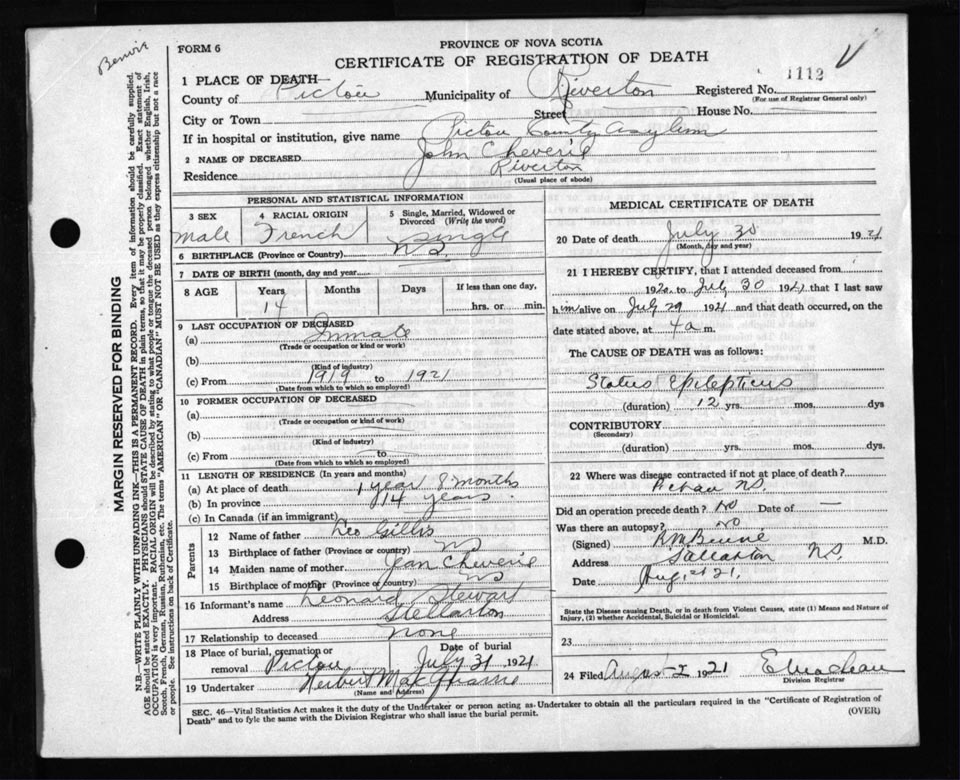 FORM 6
PROVINCE OF NOVA SCOTIA
CERTIFICATE OF REGISTRATION OF DEATH
1112
1 PLACE OF DEATH—
County of Pictou Municipality of Riverton Registered No.
(For use of Registrar General only)
City or Town Street House No.
If in hospital or institution, give name Pictou County Asylum
2 NAME OF DECEASED John Cheverie
Residence Riverton
(Usual place of abode)
PERSONAL AND STATISTICAL INFORMATION
3 SEX Male
4 RACIAL ORIGIN French
5 Single, Married, Widowed or Divorced (Write the word) Single
6 BIRTHPLACE (Province or Country) N S
7 DATE OF BIRTH (month, day and year)
8 AGE Years 14 Months Days If less than one day, hrs. or min.
9 LAST OCCUPATION OF DECEASED
(a) Inmate
(Trade or occupation or kind of work)
(b)
(Kind of industry)
(c) From 1919 to 1921
(Date from which to which so employed)
10 FORMER OCCUPATION OF DECEASED
(a)
(Trade or occupation or kind of work)
(b)
(Kind of industry)
(c) From to
(Date from which to which so employed)
11 LENGTH OF RESIDENCE (In years and months)
(a) At place of death 1 year 8 months
(b) In province 14 years
(c) In Canada (if an immigrant)
Parents
12 Name of father Leo Gillis
13 Birthplace of father (Province or country) N S
14 Maiden name of mother Jean Cheverie
15 Birthplace of mother (Province or country) N S
16 Informant's name Leonard Stewart
Address Stellarton
17 Relationship to deceased none
18 Place of burial, cremation or removal Pictou Date of burial July 31 1921
19 Undertaker Herbert
(Name and address)
MEDICAL CERTIFICATE OF DEATH
20 Date of death July 30 1921
(Month, day and year)
21 I HEREBY CERTIFY, that I attended deceased from
192 to July 30 1921 that I last saw
him alive on July 29 1921 and that death occurred, on the
date stated above, at 4 a m.
The CAUSE OF DEATH was as follows:
Status Epilepticus
(duration) 12 yrs. mos. dys
CONTRIBUTORY
(Secondary)
(duration) yrs. mos. dys.
22 Where was disease contracted if not at place of death?
Pictou N.S.
Did an operation precede death? No Date of —
Was there an autopsy? No
(Signed) M.D.
Address Stellarton N.S.
Date Aug. 2nd 21.
State the Disease causing Death, or in death from Violent Causes, state (1) Means and Nature of
Injury, (2) whether Accidental, Suicidal or Homicidal.
23
24 Filed August 2 1921
Division Registrar
SEC. 46—Vital Statistics Act makes it the duty of the Undertaker or person acting as Undertaker to obtain all the particulars required in the "Certificate of Registration of
Death" and to fyle the same with the Division Registrar who shall issue the burial permit.
(OVER)
MARGIN RESERVED FOR BINDING
N.B.—WRITE PLAINLY WITH UNFADING INK—THIS IS A PERMANENT RECORD. Every item of information should be carefully supplied.
AGE should be stated EXACTLY. PHYSICIANS should STATE CAUSE OF DEATH in plain terms, so that it may be properly classified. Exact statement of
OCCUPATION is very important. RACIAL ORIGIN will be described by stating to what people or tongue the deceased person belonged whether English, Irish,
Scotch, French, German, Russian, Ruthenian, etc. The terms "AMERICAN" OR "CANADIAN" MUST NOT BE USED as they express citizenship but not a race
or people. See instructions on back of Certificate.